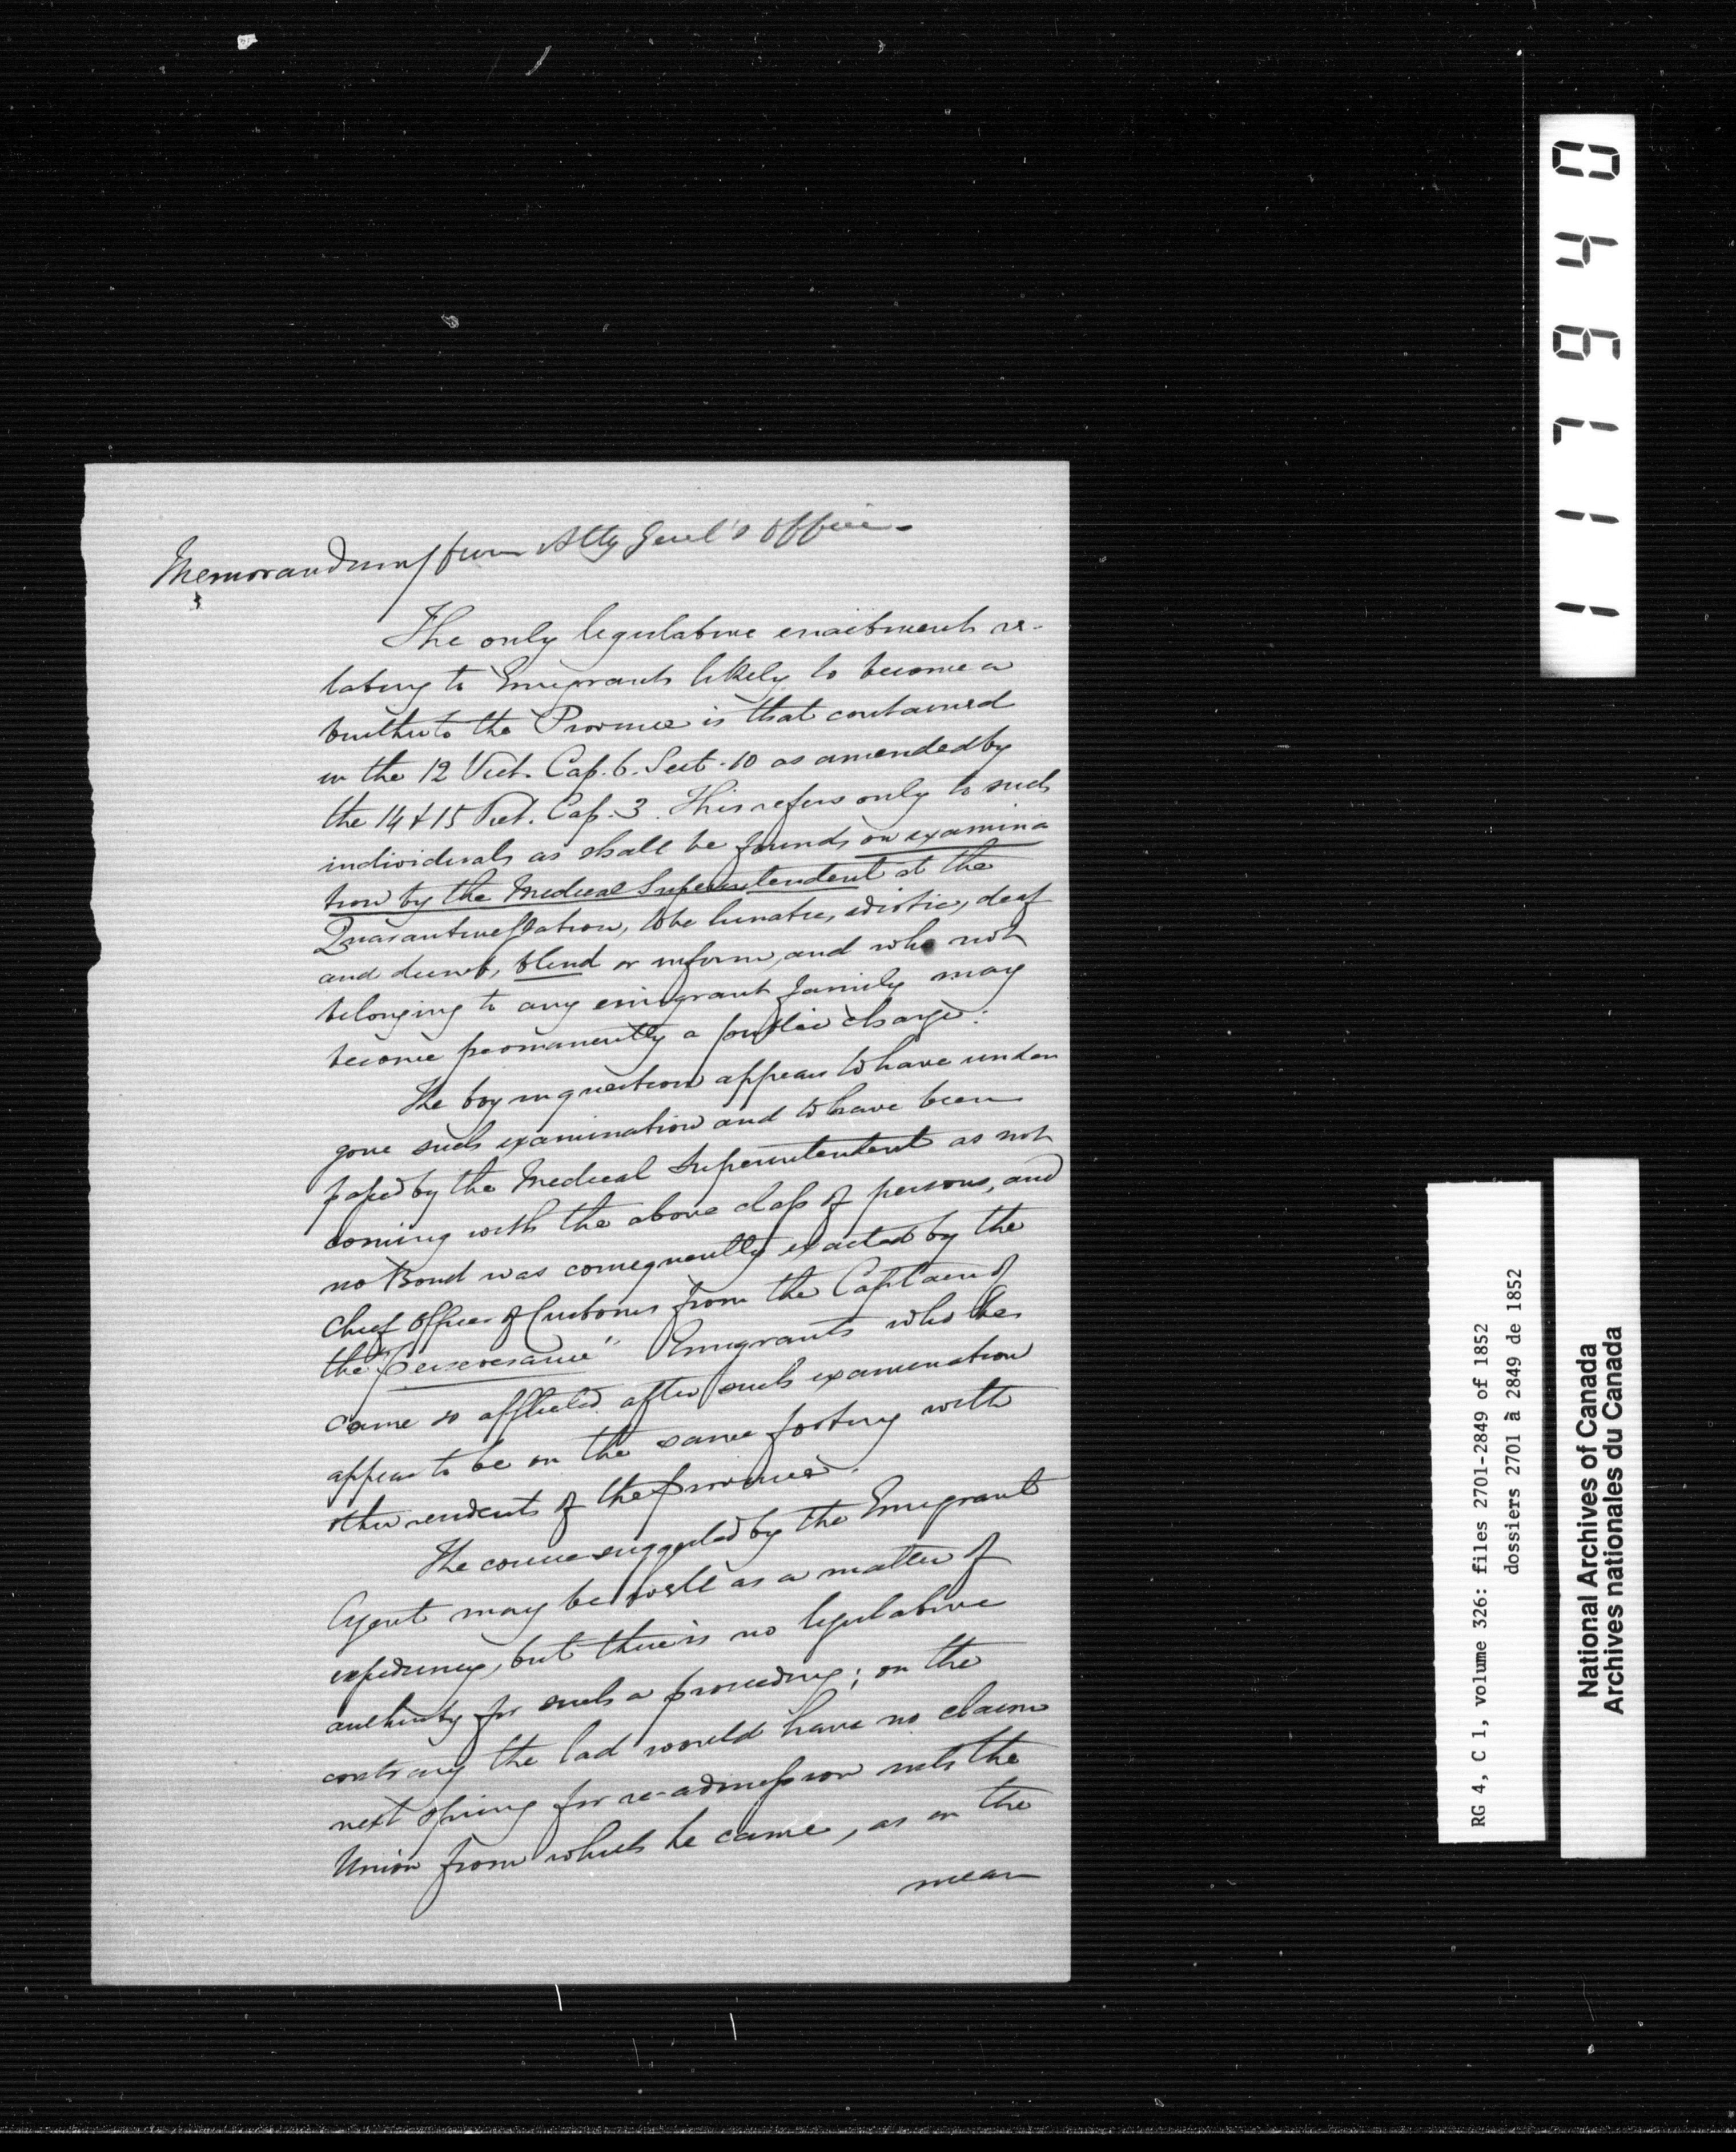 Memorandum from Atty Genl's Office -
The only legislative enactment re-
lating to Emigrants likely to become a
burthen to the Province is that contained
in the 12 Vict. Cap. 6. Sect. 10 as amended by
the 14 & 15 Vict. Cap. 3. This refers only to such
individuals as shall be found, on examina
tion by the Medical Superintendent at the
Quarantine Station, to be lunatic, idiotic, deaf
and dumb, blind or infirm, and who not
belonging to any emigrant family may
become permanently a public charge:
The boy in question appears to have under
gone such examination and to have been
passed by the Medical Superintendent as not
coming with the above class of persons, and
no Bond was consequently exacted by the
Chief Officer of Customs from the Captain of
the "Perseverance" Emigrants who be
came so afflicted after such examination
appear to be on the same footing with
other residents of the province.
The course suggested by the Emigrant
Agent may be well as a matter of
expediency, but there is no legislative
authority for such a proceeding; on the
contrary the lad would have no claim
next spring for re-admission into the
Union from which he came, as in the
mean
117940
RG 4, C 1, volume 326: files 2701-2849 of 1852
dossiers 2701 à 2849 de 1852
National Archives of Canada
Archives nationales du Canada